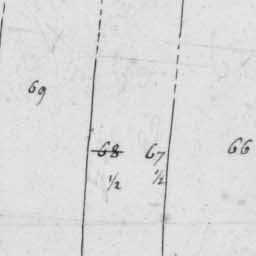 69
68 67 66
1/2 1/2